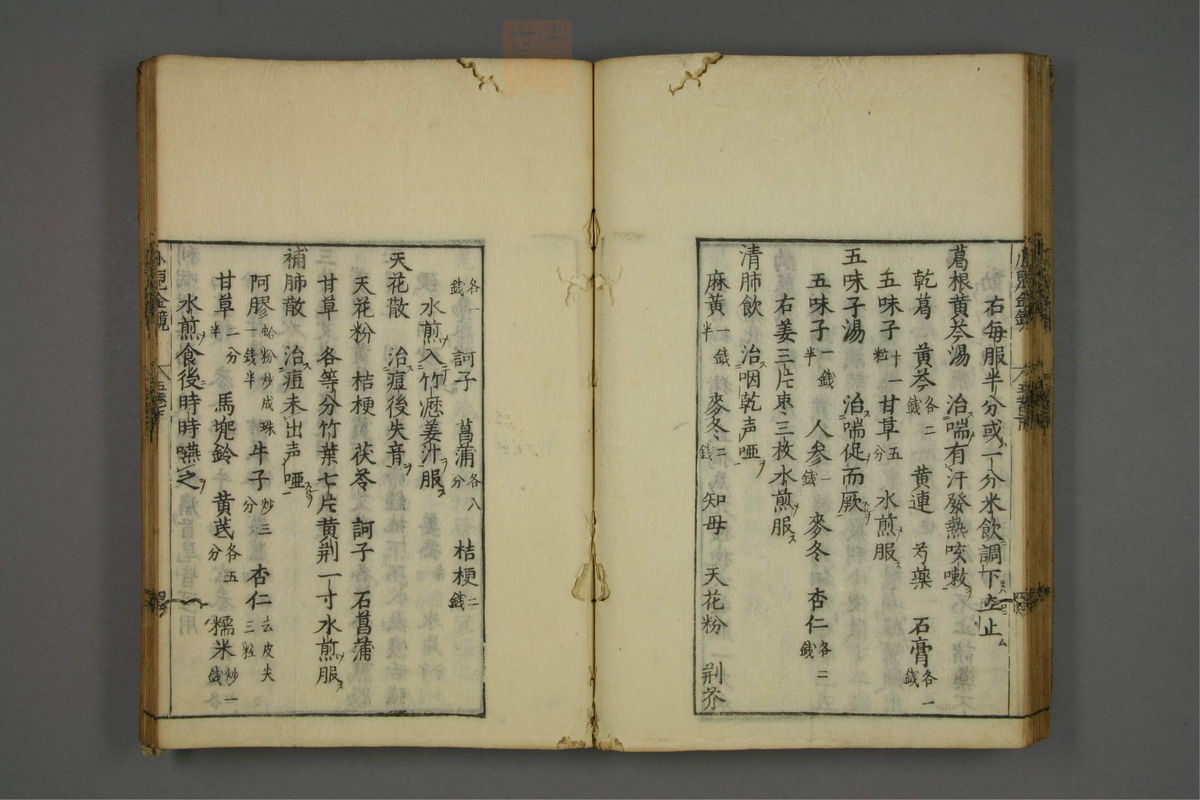 右每服半分或一分米飲調下立止
葛根黃芩湯 治喘有汗發熱咳嗽
乾葛 黃芩各二錢 黃連 芍藥 石膏各一錢
五味子十一粒 甘草五分 水煎服
五味子湯 治喘促而厥
五味子一錢半 人参一錢 麥冬 杏仁各二錢
右姜三片枣三枚水煎服
清肺飲 治咽乾声啞
麻黃一錢半 麥冬二錢 知母 天花粉 荆芥
各一錢 訶子 菖蒲各八分 桔梗二錢
水煎入竹瀝姜汁服
天花散 治痘後失音
天花粉 桔梗 茯苓 訶子 石菖蒲
甘草 各等分竹葉七片黃荆一寸水煎服
補肺散 治痘未出声啞
阿膠一錢半蛤粉炒成珠 牛子炒三分 杏仁去皮尖三粒
甘草二分半 馬兜鈴 黃芪各五分 糯米炒一錢
水煎食後時時嚥之
小兒金鏡